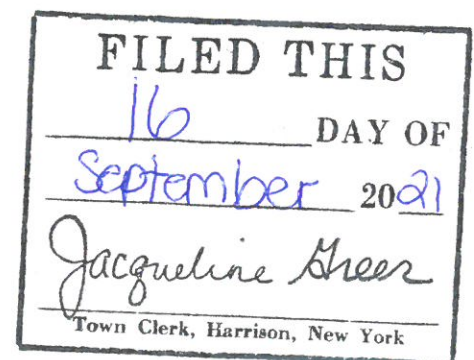 FILED THIS
16 DAY OF
September 2021
Jacqueline Greer
Town Clerk, Harrison, New York